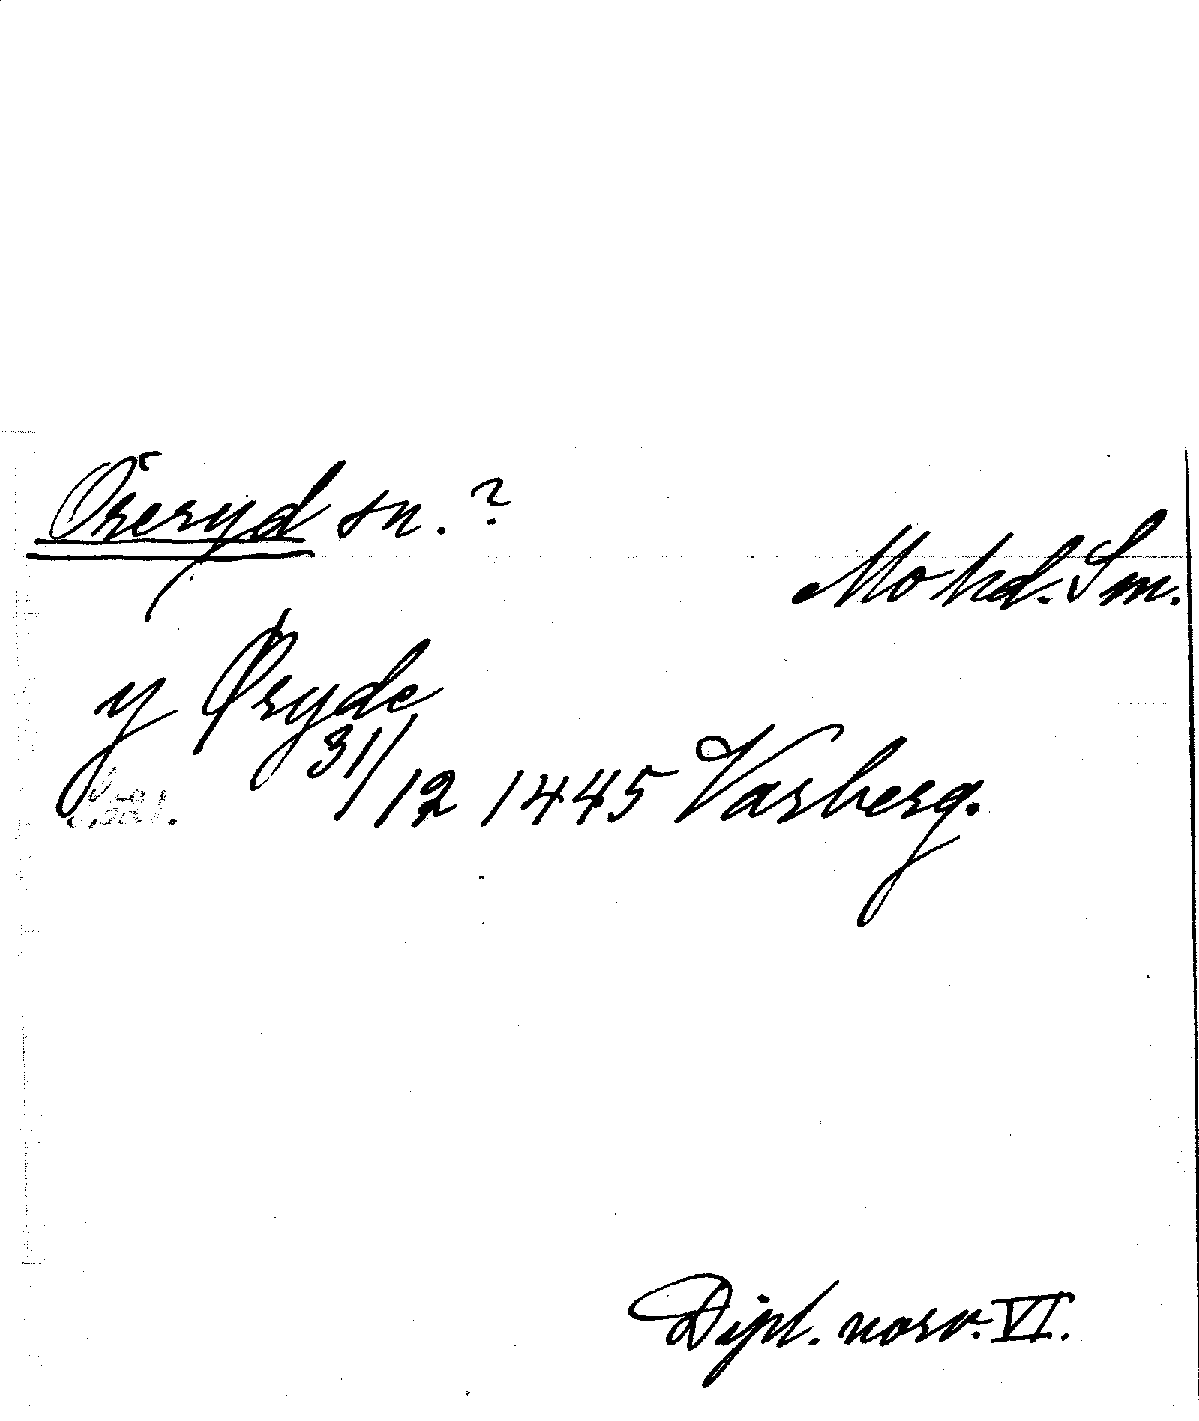 Öreryd sn. ?
Mo hd. Sm.
y Øryde
31/12 1445 Varberg.
Dipl. norv. VI.